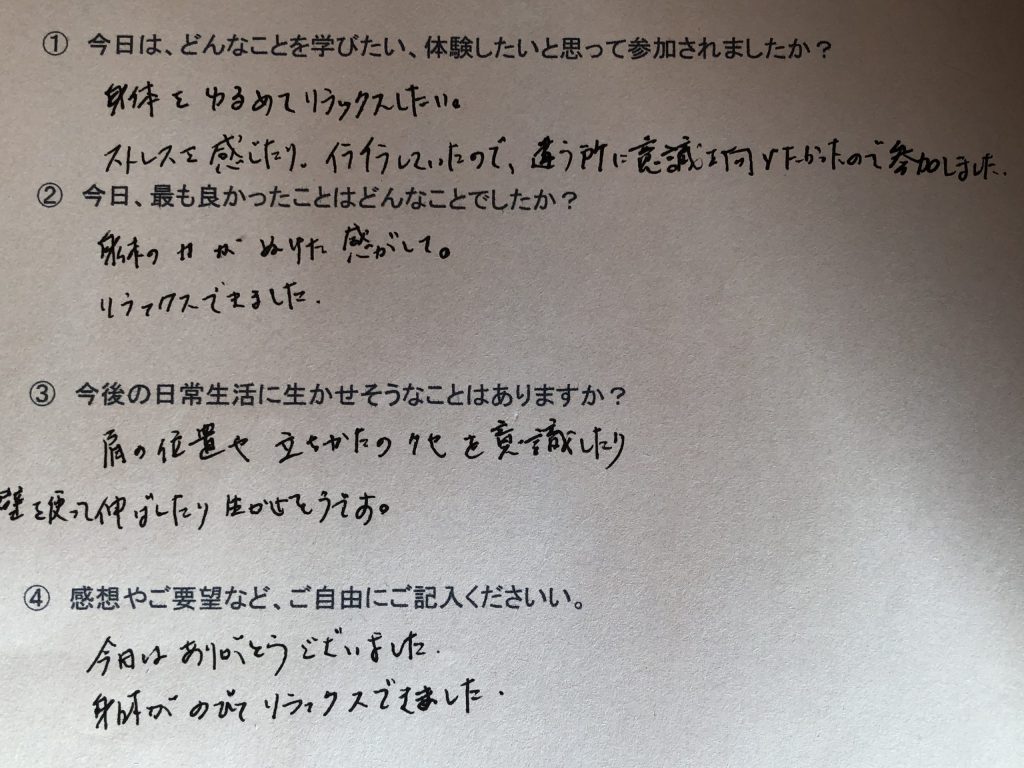 ① 今日は、どんなことを学びたい、体験したいと思って参加されましたか？
身体を ゆるめて リラックスしたい。
ストレスを 感じたり、イライラしていたので、違う所に意識を向けたかったので参加しました.
② 今日、最も良かったことはどんなことでしたか？
身体の 力が ぬけた 感がして。
リラックスできました.
③ 今後の日常生活に生かせそうなことはありますか？
肩の位置や 立ちかたの クセを意識したり
壁を使って伸ばしたり 生かせそうです。
④ 感想やご要望など、ご自由にご記入くださいい。
今日は ありがとうございました.
身体が のびて リラックスできました.